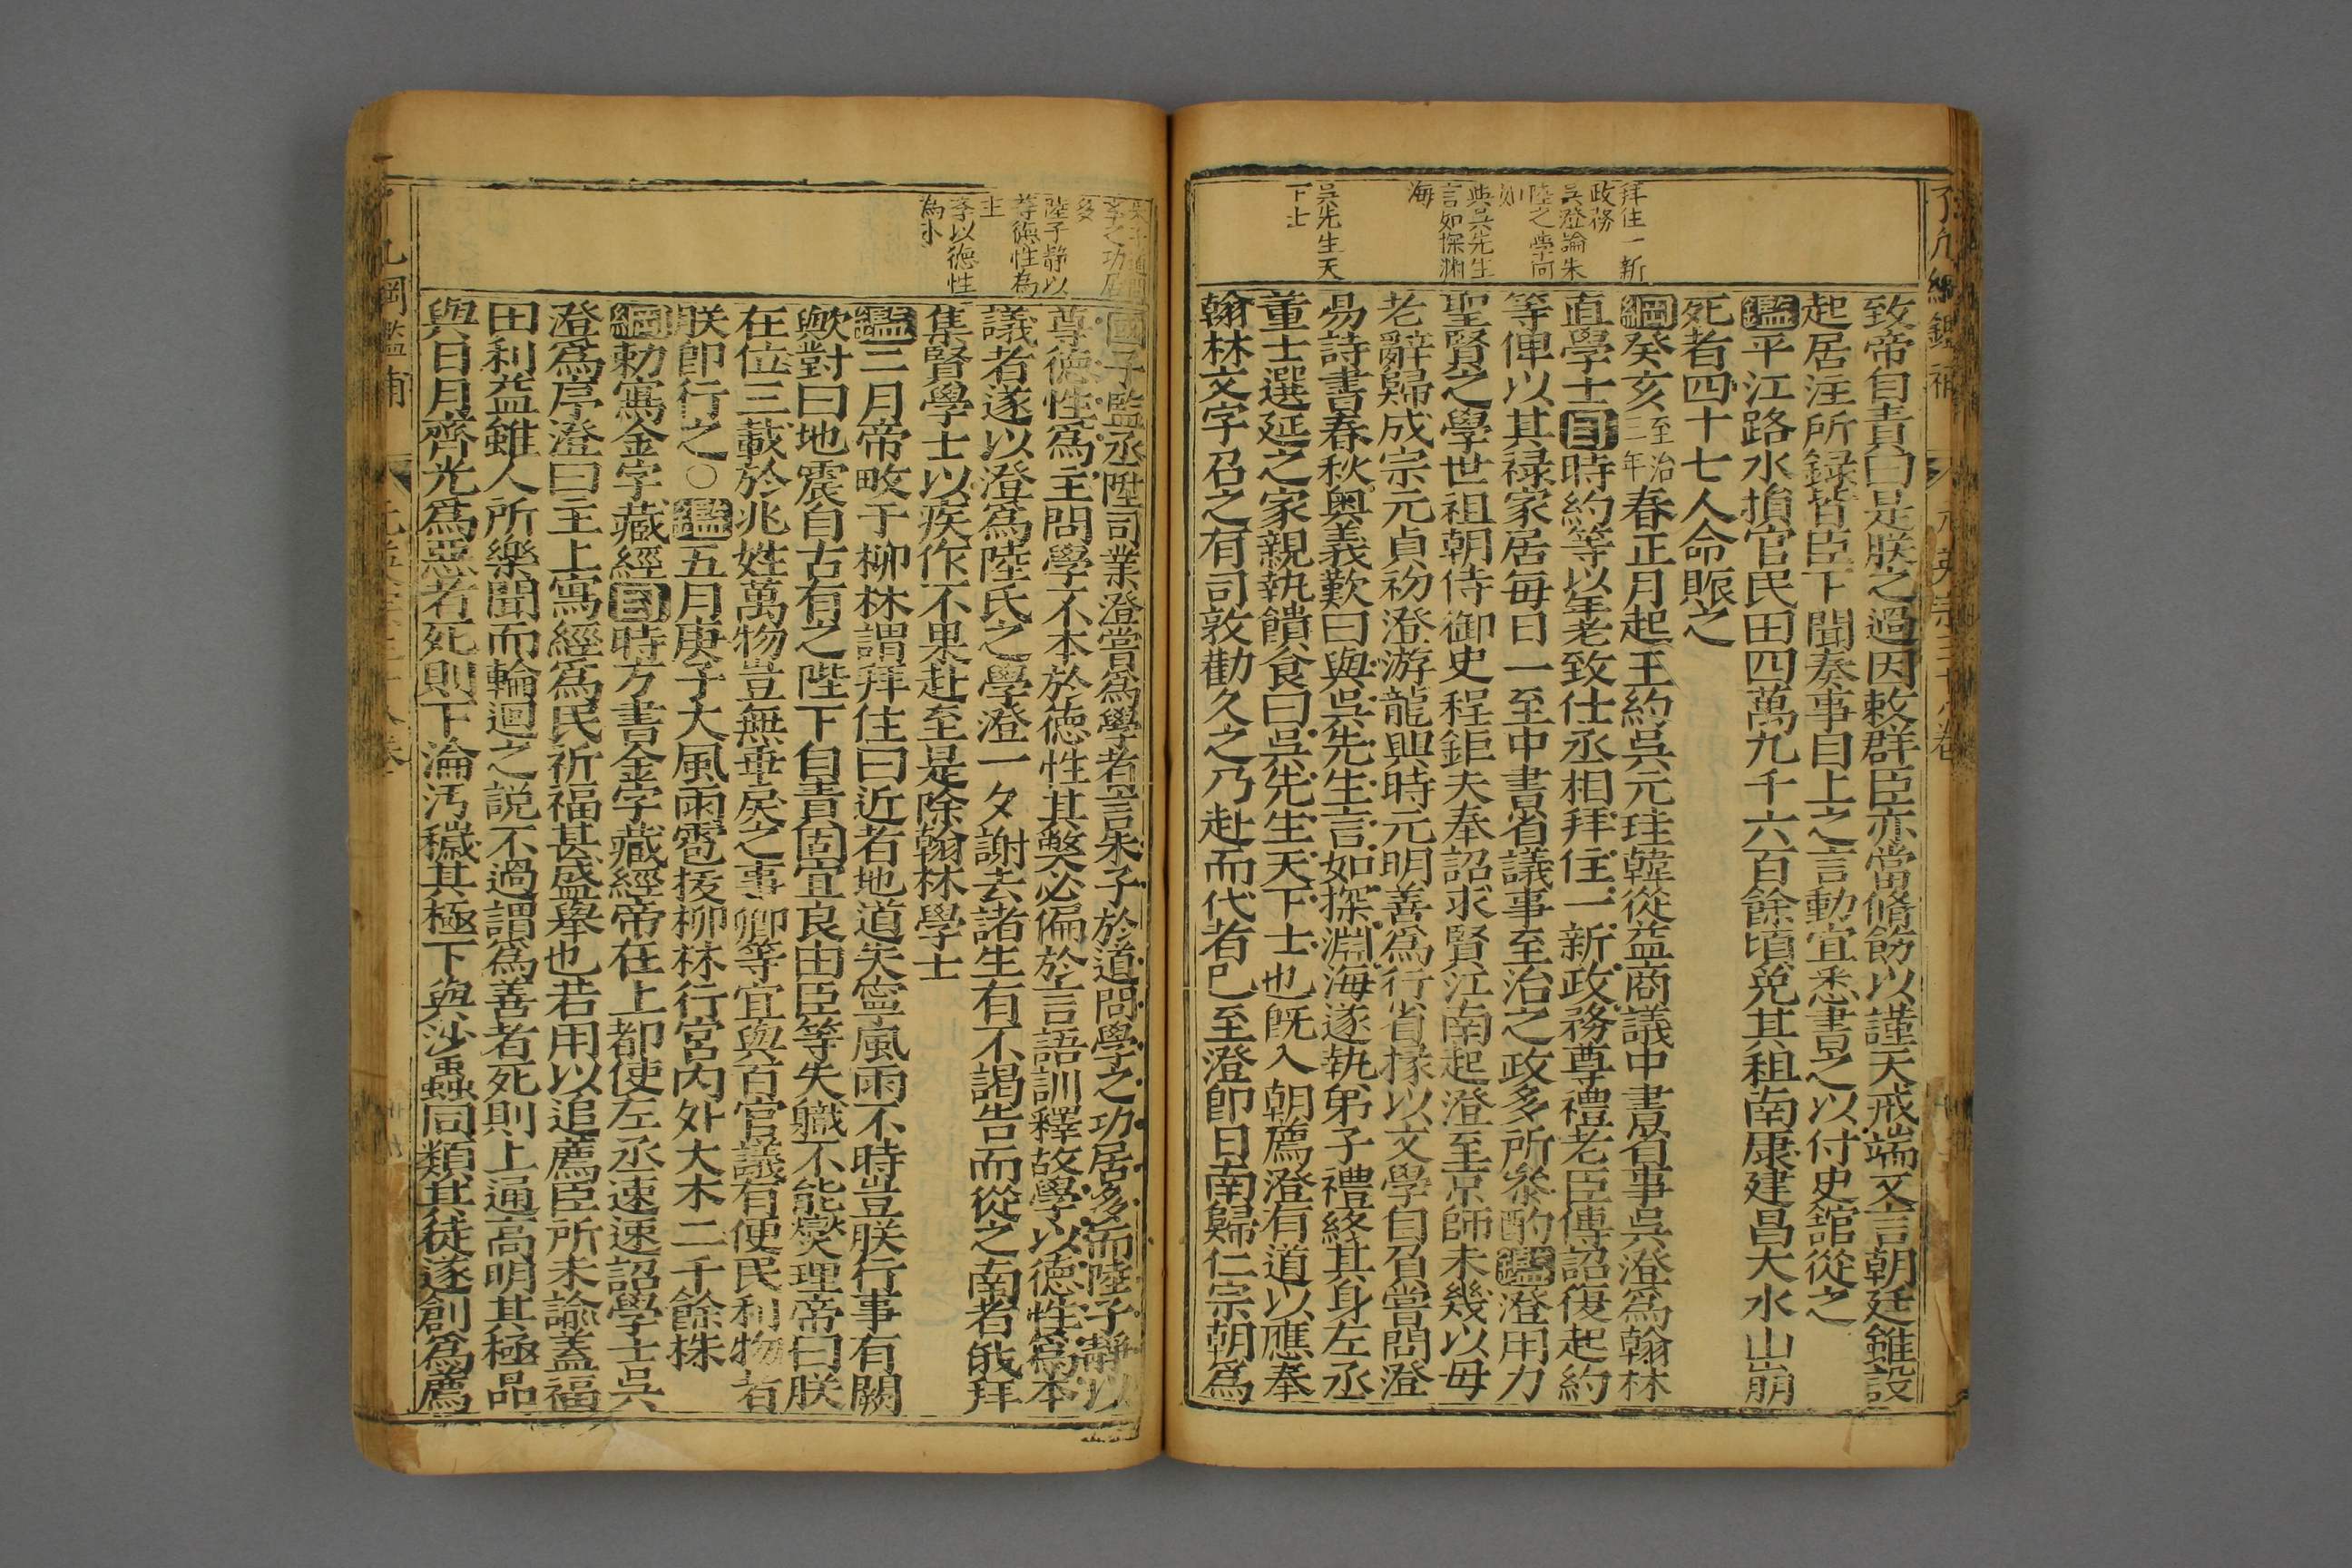 了凡綱鑑補
元英宗三十八卷
拜住一新
政務
吳澄論朱
陸之學何
如
與吳先生
言如探淵
海
吳先生天
下士
致帝自責曰是朕之過因敕群臣亦當脩飭以謹天戒端又言朝廷雖設
起居注所録皆臣下聞奏事目上之言動宜悉書之以付史舘從之
鑑平江路水損官民田四萬九千六百餘頃免其租南康建昌大水山崩
死者四十七人命賑之
綱癸亥至治三年春正月起王約吳元珪韓從益商議中書省事吳澄爲翰林
直學士目時約等以年老致仕丞相拜住一新政務尊禮老臣傳詔復起約
等俾以其禄家居每日一至中書省議事至治之政多所叅酌鑑澄用力
聖賢之學世祖朝侍御史程鉅夫奉詔求賢江南起澄至京師未幾以母
老辭歸成宗元貞初澄游龍興時元明善爲行省掾以文學自負嘗問澄
易詩書春秋奧義歎曰與吳先生言如探淵海遂執弟子禮終其身左丞
董士選延之家親執饋食曰吳先生天下士也旣入朝薦澄有道以應奉
翰林文字召之有司敦勸久之乃赴而代者已至澄即日南歸仁宗朝爲
學之功居
多
陸子靜以
尊德性爲
主
學以德性
為本
國子監丞陞司業澄嘗爲學者言朱子於道問學之功居多而陸子靜以
尊德性爲主問學不本於德性其弊必偏於言語訓釋故學以德性爲本
議者遂以澄爲陸氏之學澄一夕謝去諸生有不謁告而從之南者俄拜
集賢學士以疾作不果赴至是除翰林學士
鑑二月帝畋于柳林謂拜住曰近者地道失寧風雨不時豈朕行事有闕
歟對曰地震自古有之陛下自責固宜良由臣等失職不能爕理帝曰朕
在位三載於兆姓萬物豈無乖戾之事卿等宜與百官議有便民利物者
朕即行之○鑑五月庚子大風雨雹拔柳林行宮内外大木二千餘株
綱勅寫金字藏經目時方書金字藏經帝在上都使左丞速速詔學士吳
澄爲序澄曰主上寫經爲民祈福甚盛舉也若用以追薦臣所未諭蓋福
田利益雖人所樂聞而輪迴之説不過謂爲善者死則上通高明其極品
與日月齊光爲惡者死則下淪汚穢其極下與沙蟲同類其徒遂創爲薦
凡綱鑑補